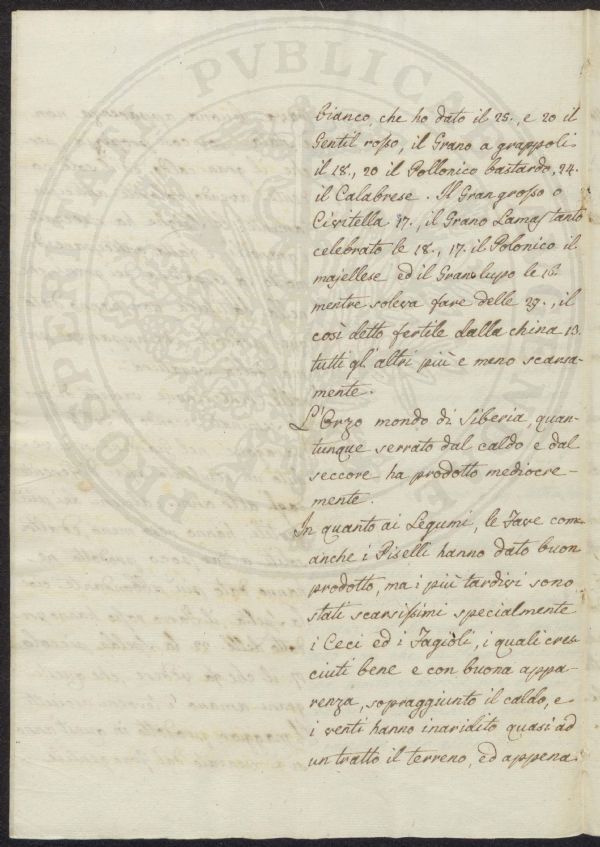 bianco, che ho dato il 25., e 20 il
Gentil rosso, il Grano a grappoli
il 18., 20 il Pollonico bastardo, 24.
il Calabrese. Il Grangrosso o
Civitella 17. il Grano Lamas tanto
celebrato le 18., 17. il Polonico il
majellese ed il Granolupo le 16.
mentre soleva fare delle 29., il
così detto fertile dalla china 13.
tutti gl'altri più e meno scarsa-
mente.
L'Orzo mondo di Siberia, quan-
tunque serrato dal caldo e dal
seccore ha prodotto mediocre-
mente.
In quanto ai Legumi, le Fave com
anche i Piselli hanno dato buon
prodotto, ma i più tardivi sono
stati scarsissimi specialmente
i Ceci ed i Fagioli, i quali cres
ciuti bene e con buona appa-
renza, sopraggiunto il caldo, e
i venti hanno inaridito quasi ad
un tratto il terreno, ed appena